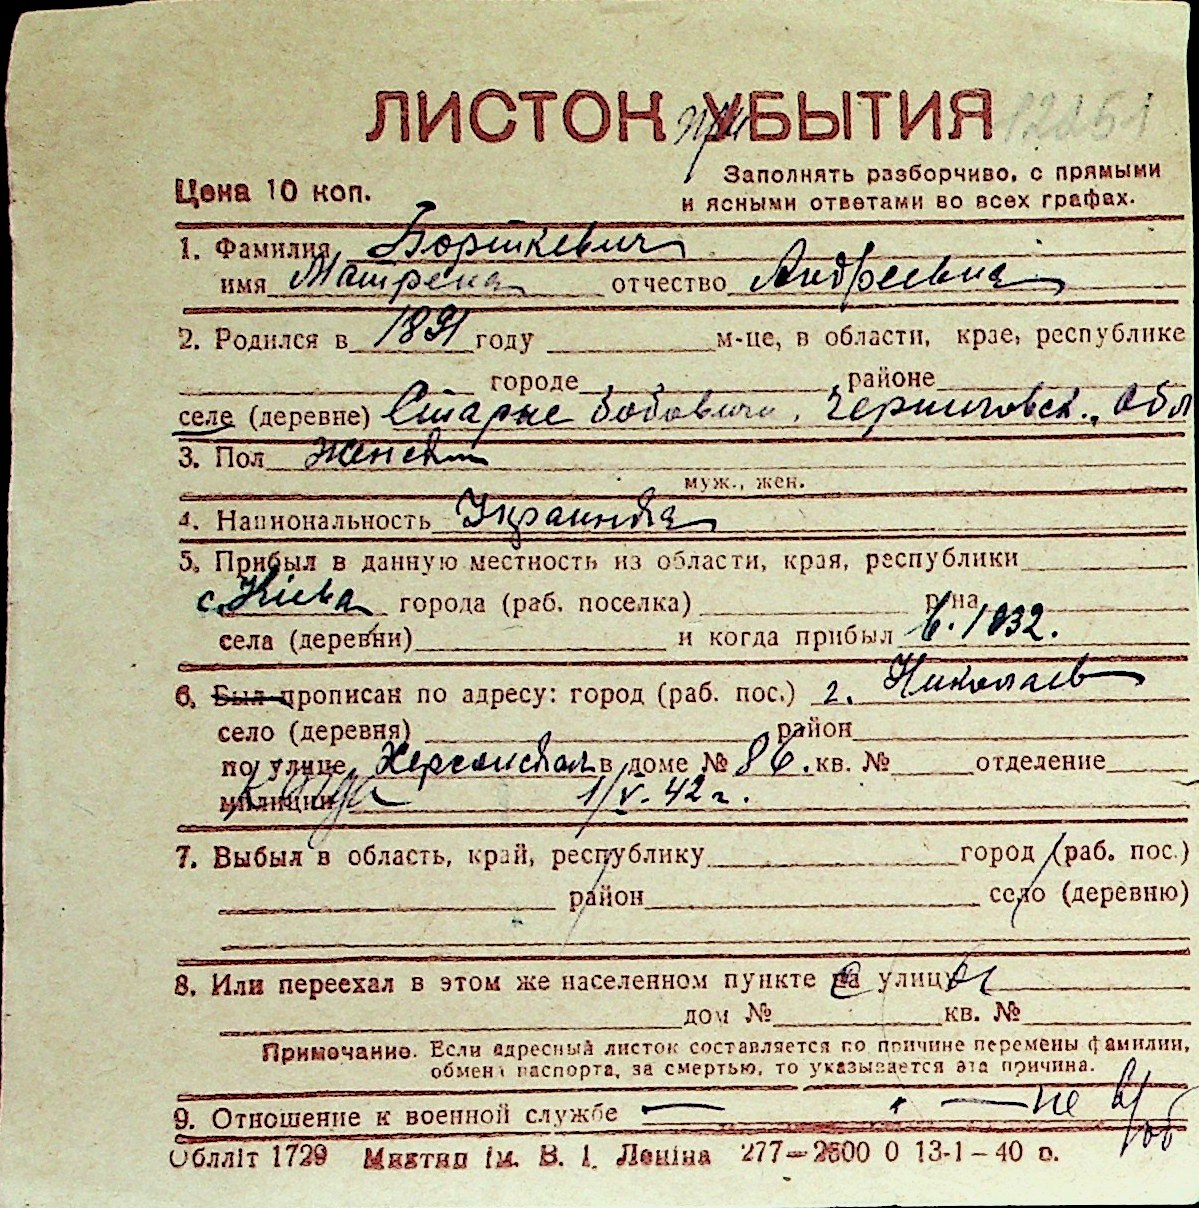 ЛИСТОК УБЫТИЯ 12251
при
Цена 10 коп.
Заполнять разборчиво, с прямыми
и ясными ответами во всех графах.
1. Фамилия Борткевич
имя Матрена отчество Андреевна
2. Родился в 1891 году м-це, в области, крае, республике
городе районе
селе (деревне) Старые Бобовичи, Черниговск., обл
3. Пол женский
муж., жен.
4. Национальность Украинка
5. Прибыл в данную местность из области, края, республики
с. Киева города (раб. поселка) р-на
села (деревни) и когда прибыл в 1932.
6. Был прописан по адресу: город (раб. пос.) г. Николаев
село (деревня) район
по улице Херсонская в доме № 86. кв. № отделение
милиции когда 1/V-42 г.
7. Выбыл в область, край, республику город (раб. пос.)
район село (деревню)
8. Или переехал в этом же населенном пункте на улицу
дом № кв. №
Примечание. Если адресный листок составляется по причине перемены фамилии,
обмена паспорта, за смертью, то указывается эта причина.
9. Отношение к военной службе — — не в/об
Облліт 1729 Миктип ім. В. І. Леніна 277—2500 0 13-1-40 р.